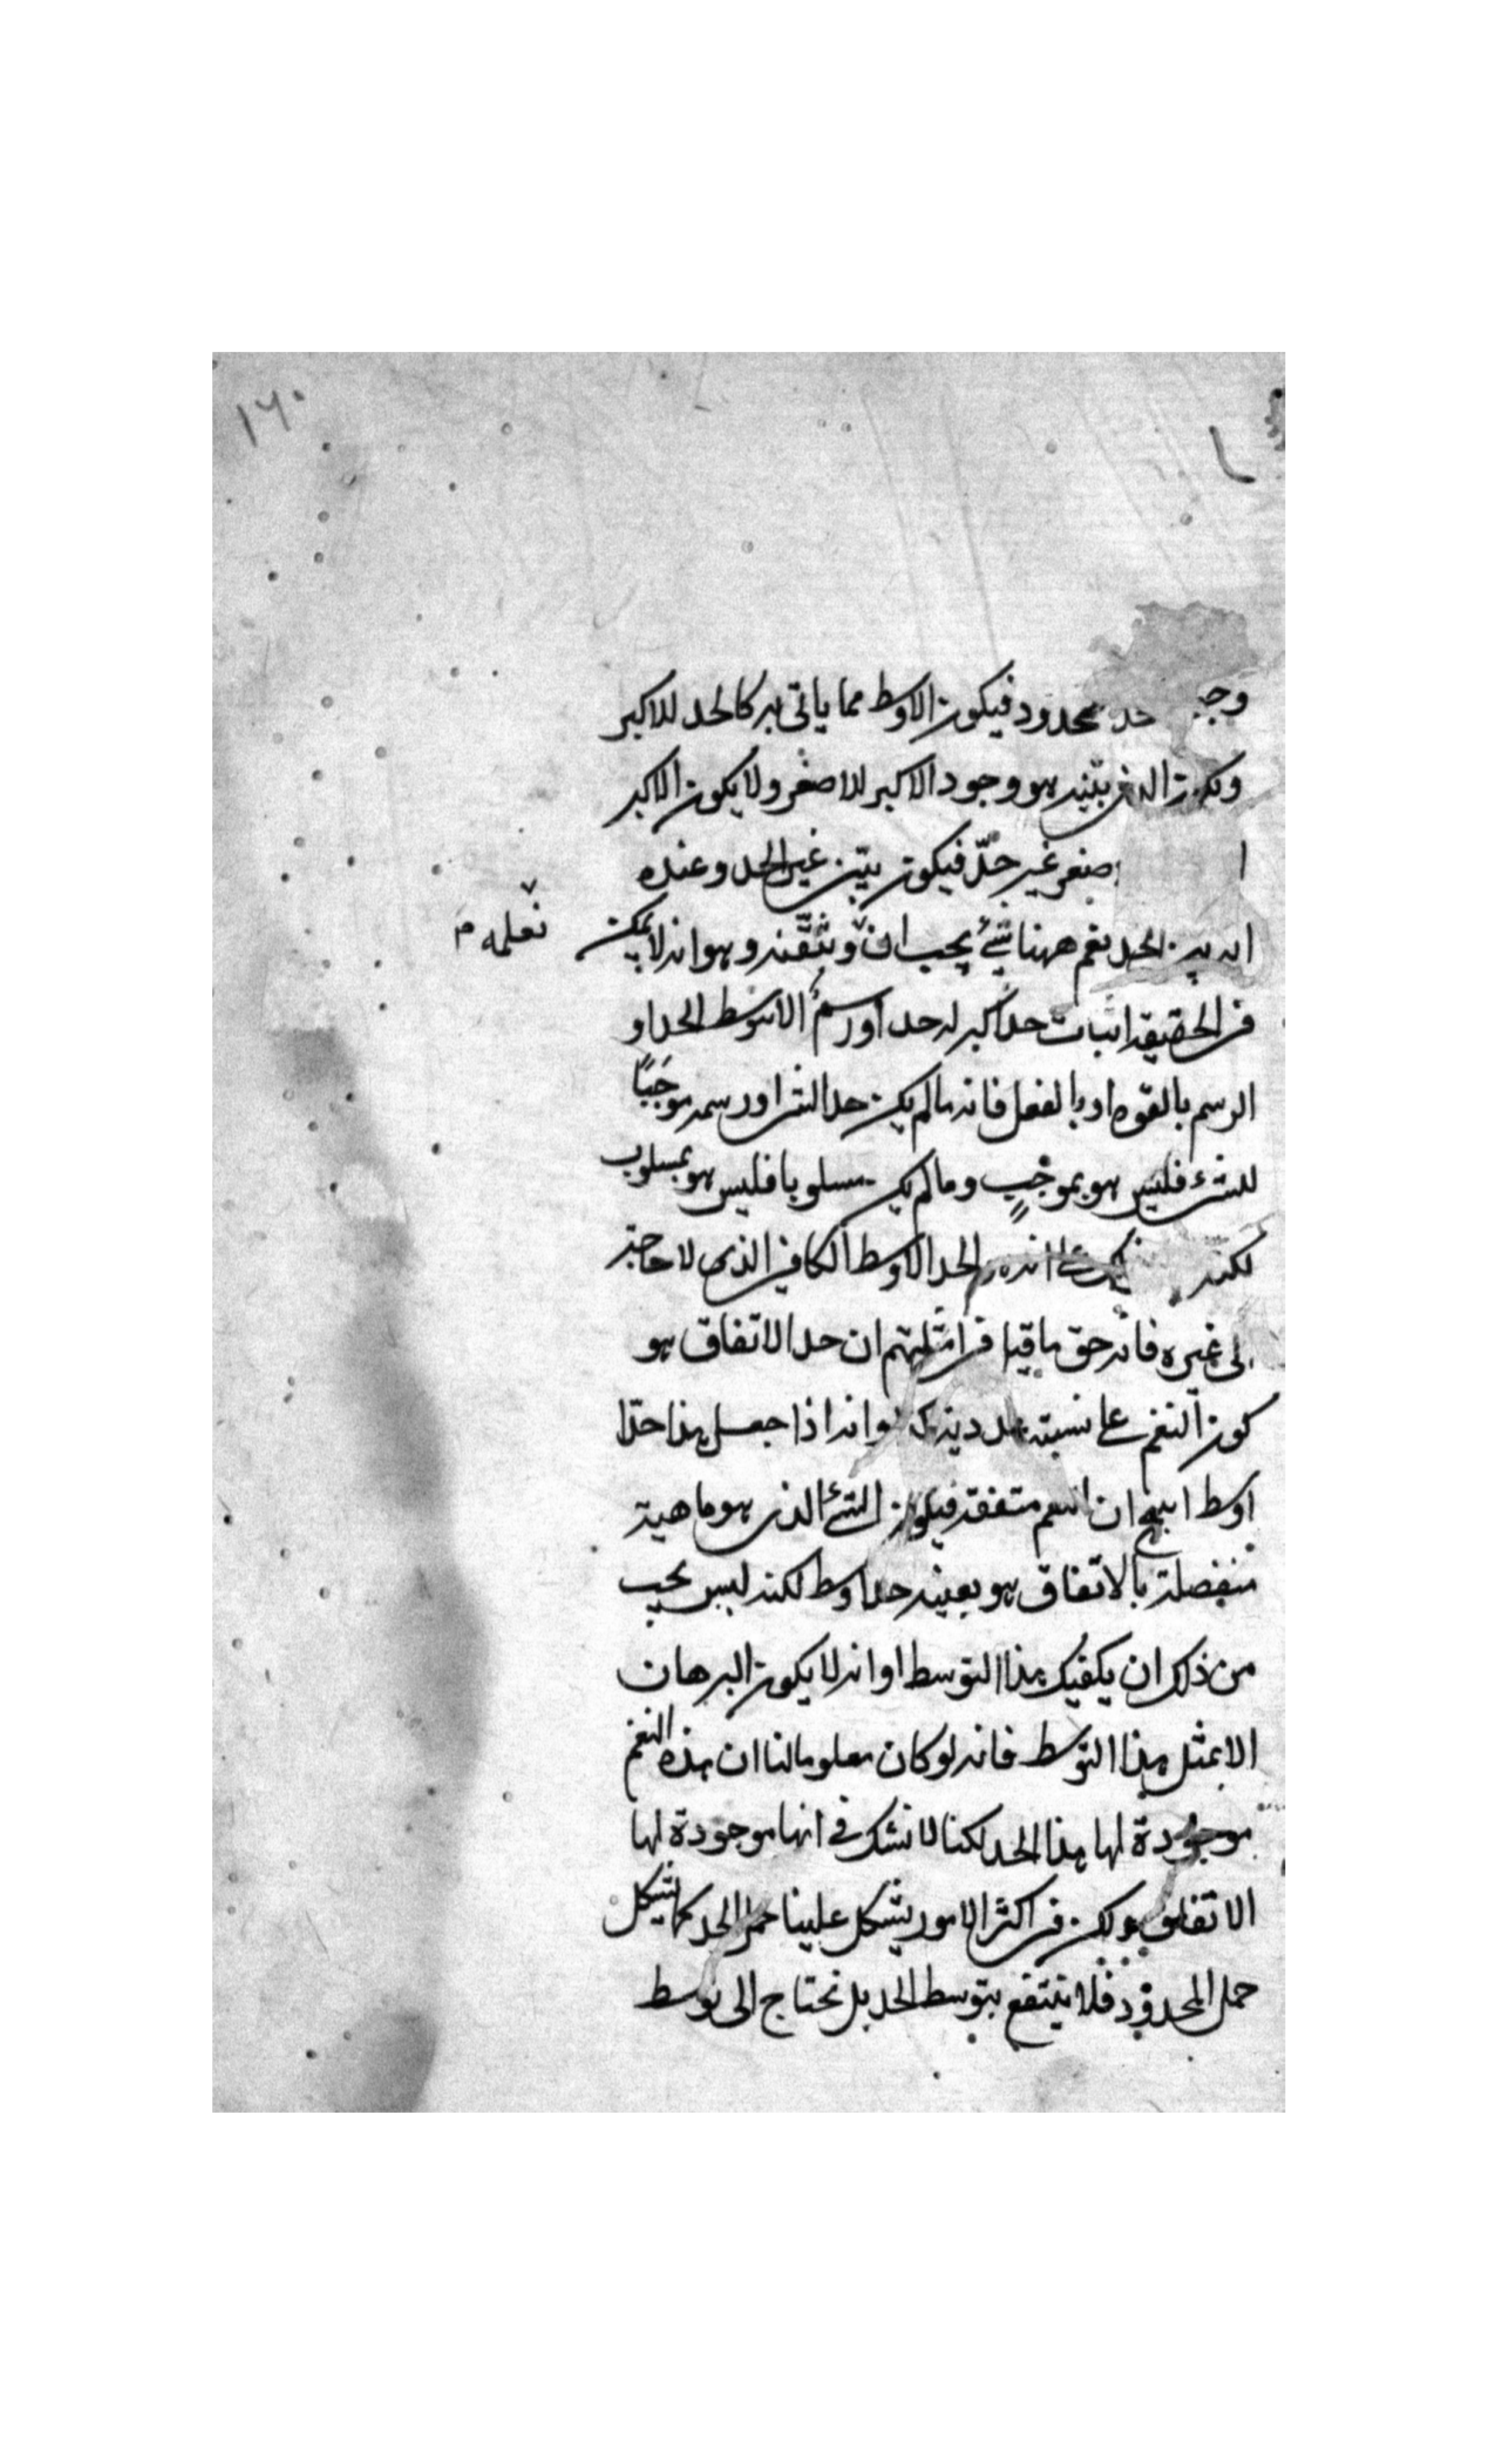 ١٦٠
حد محدود فيكون الاوسط مما ياتى به كالحد للاكبر
بيّنه هو وجود الاكبر للاصغر ولا يكون الاكبر
غير حدّ فيكون بيّن غير الحد وعنده
الحد نعم ههنا شئ يجب ان ونتقنه وهو انه لا يمكن
نعلمه م
فى الحقيقة اثبات حد اكبر له حد او رسم الا بتوسط الحد او
الرسم بالقوه او بالفعل فانه ما لم يكن حد الشئ او رسمه موجبًا
للشئ فليس هو بموجبٍ وما لم يكن مسلوبا فليس هو بمسلوب
لكنه الحد الاوسط الكافى الذى لا حاجة
الى غيره فانه حق ما قيل فى امثلتهم ان حد الاتفاق هو
كون النغم على نسبة وانه اذا جعل هذا حدّا
اوسط انتج ان النغم متفقة فيكون الشئ الذى هو ماهية
منفصلة بالاتفاق هو بعينه حد اوسط لكنه ليس يجب
من ذلك ان يكفيك هذا التوسط او انه لا يكون البرهان
الا بمثل هذا التوسط فانه لو كان معلوما لنا ان هذه النغم
موجودة لها هذا الحد لكنا لا نشك فى انها موجودة لها
الاتفاق ولكن فى اكثر الامور يشكل علينا حمل الحد كما يشكل
حمل المحدود فلا ينتفع بتوسط الحد بل نحتاج الى توسط